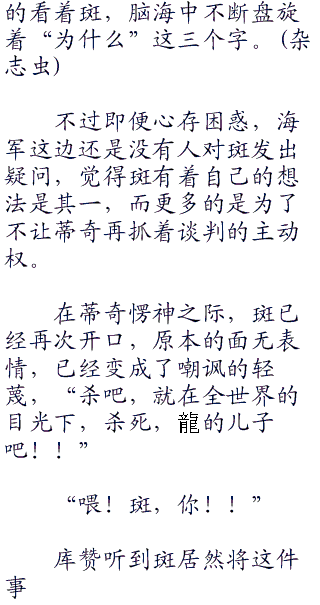 的看着斑，脑海中不断盘旋
着“为什么”这三个字。(杂
志虫)
不过即便心存困惑，海
军这边还是没有人对斑发出
疑问，觉得斑有着自己的想
法是其一，而更多的是为了
不让蒂奇再抓着谈判的主动
权。
在蒂奇愣神之际，斑已
经再次开口，原本的面无表
情，已经变成了嘲讽的轻
蔑，“杀吧，就在全世界的
目光下，杀死，龍的儿子
吧！！”
“喂！斑，你！！”
库赞听到斑居然将这件
事